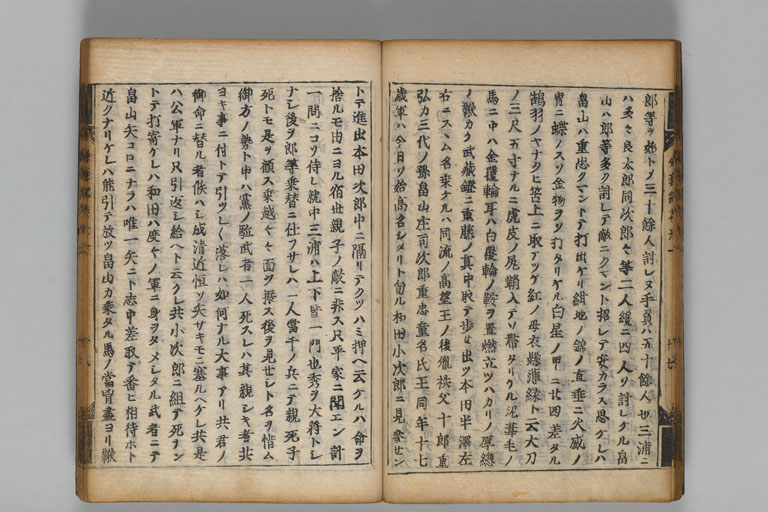 郎等ヲ始トメ三十餘人討レヌ手負ハ五十餘人也三浦ニ
ハ多々良太郎同次郎ヤ等二人纔ニ四人ソ討レケル畠
山ハ郎等多ク討レテ敵ニクマント招レテ安カラス思ケレハ
畠山ハ重忠クマントテ打出ケリ絹地ノ錦ノ直垂ニ火威ノ
冑ニ蝶ノスソ金物ヲソ打タリケル白星ノ甲ニ廿四差タル
鵠羽ノヤナクヒ筈上ニ取アツケ紅ノ母衣蝶薄緑ト云大刀
ノ三尺五寸ナルニ虎皮ノ尻鞘入テソ帶タリケル泥葦毛ノ
馬ニ中ハ金覆輪耳ハ白覆輪ノ鞍ヲ置燃立ツハカリノ厚總
ノ鞦カケ武藏鐙ニ重藤ノ真中取テ歩セ出ツ本田半澤左
右ニスヽム名乗ケルハ同流ノ高望王ノ後胤秩父十郎重
弘カ三代ノ孫畠山庄司次郎重忠童名氏王同年十七
歳軍ハ今日ソ始高名シメリト匐ル和田小次郎ニ見參セン
トテ進出本田次郎中ニ隔リテクツハミ押ヘ云ケルハ命ヲ
捨ルモ由ニヨル宿世親子ノ敵ニ非ス只平家ニ聞エン計
一問ニコソ侍レ就中三浦ハ上下皆一門也秀ヲ大将トレ
ナレ後ヲ郎等乗替ニ仕フサレハ一人當千ノ兵ニテ親死子
死トモ是ヲ顧ス乗越ヤヤ面ヲ振ス後ヲ見セレト名ヲ惜ム
御方ノ勢ト申ハ黨ノ駈武者一人死スレハ其親シキ者共
ヨキ事ニ付トテ引ツレく落レハ如何ナル大事アリ共君ノ
御命ニ替ル者候ハレ成清近恒ソ矢サキモニ塞ルヘケレ共是
ハ公軍ナリ只引返シ給ヘト云クレ共小次郎ニ組テ死ヲン
トテ打寄ケレハ和田ハ度々ノ軍ニ身ヲタメシタル武者ニテ
畠山矢コロニナラハ唯一矢ニト志中差取テ番ヒ相待ホト
近クナリケレハ能引テ放ツ畠山カ乗タル馬ノ當胸盡ヨリ鞦